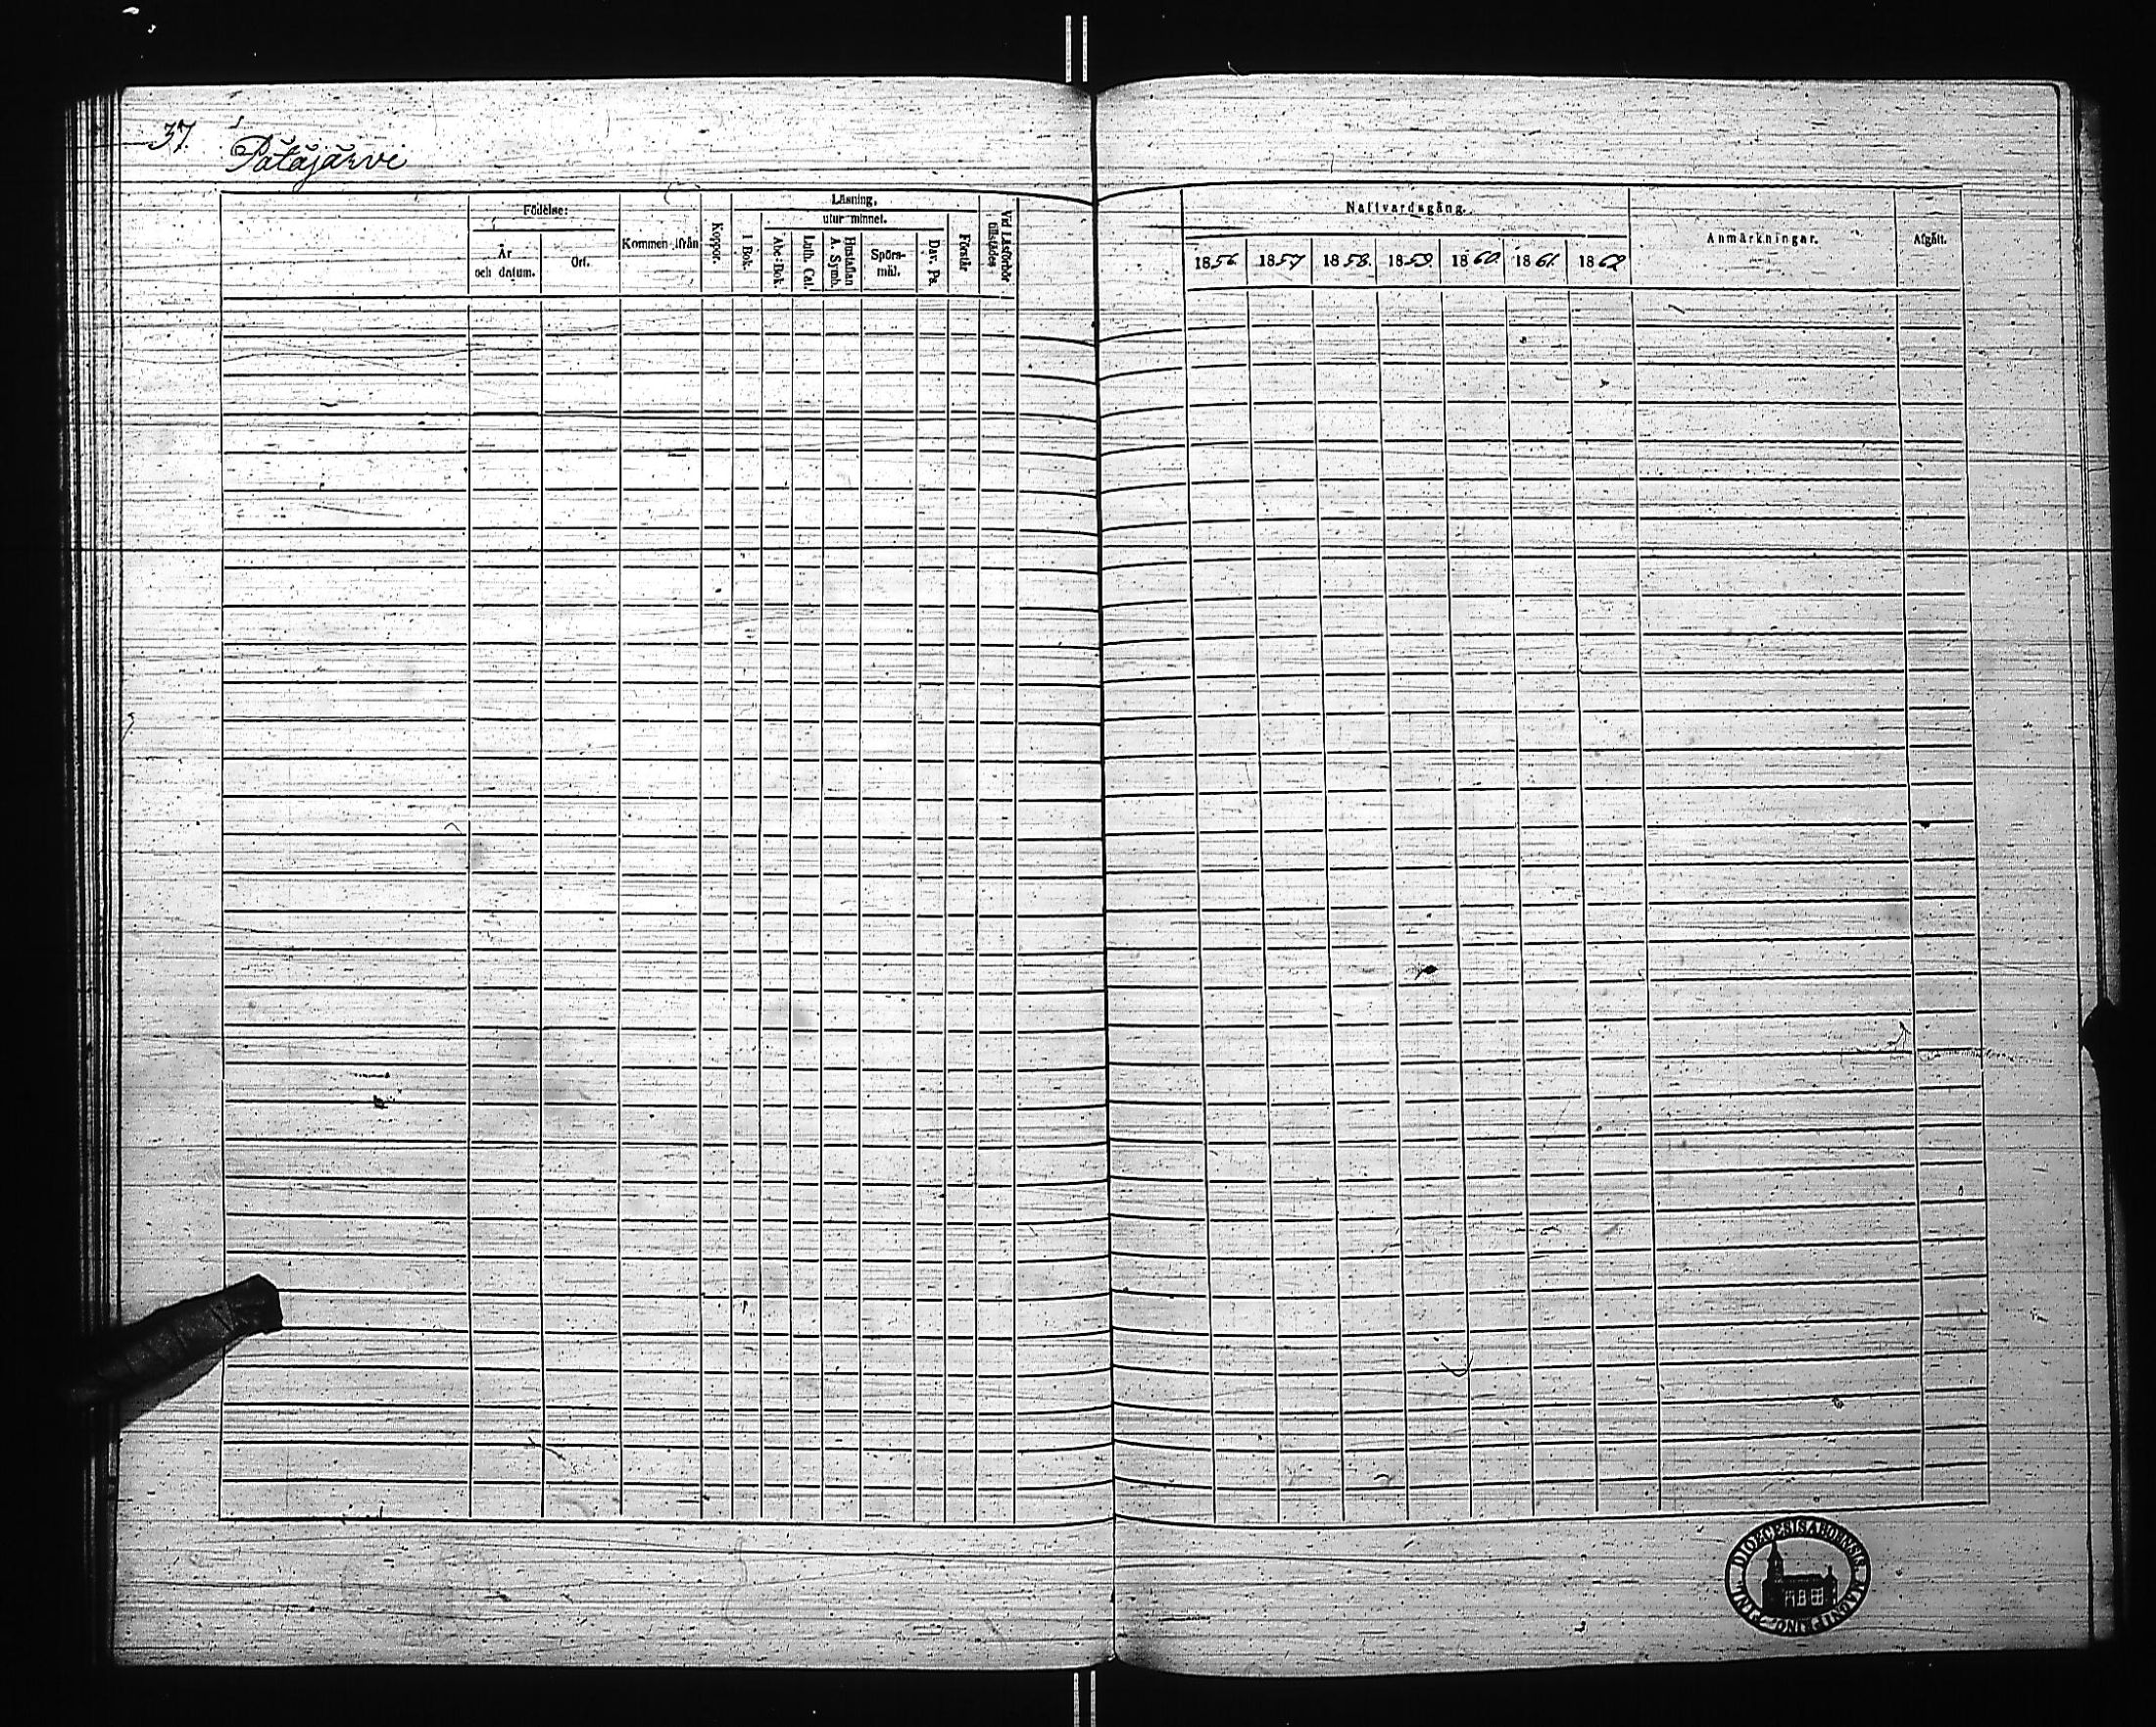 37.
Patajärvi
Födelse:
År och datum.
Ort.
Kommen ifrån
Koppor.
Läsning.
I Bok.
utur minnet.
Abc-Bok.
Luth. Cat.
Hustaflan A. Symb.
Spörsmål.
Dav. Ps.
Förstår
Vid Läsförhör tillstädes
Nattvardsgång.
1856. 1857 1858. 1859 1860 1861. 1862
Anmärkningar.
Afgått.
DIOECESIS ABOENSIS MAGNI PRINC. FINL.